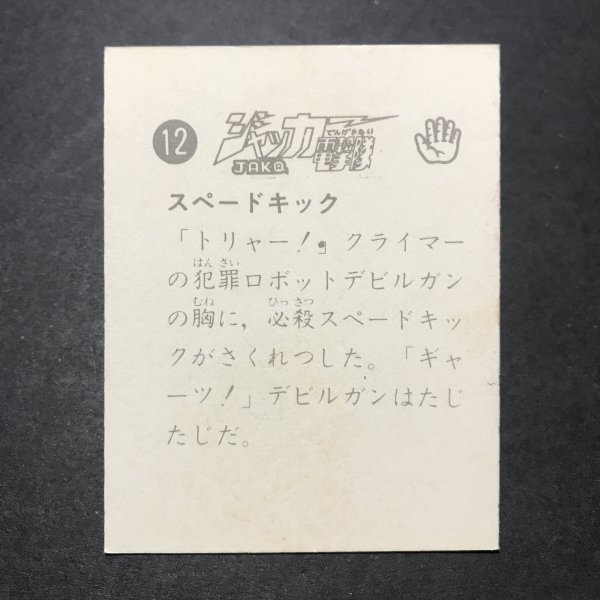 12
ジャッカー電撃隊
でんげきたい
JAKQ
スペードキック
「トリャー!」クライマー
はんざい
の犯罪ロボットデビルガン
むね ひっさつ
の胸に,必殺スペードキッ
クがさくれつした。「ギャ
ーツ!」デビルガンはたじ
たじだ。